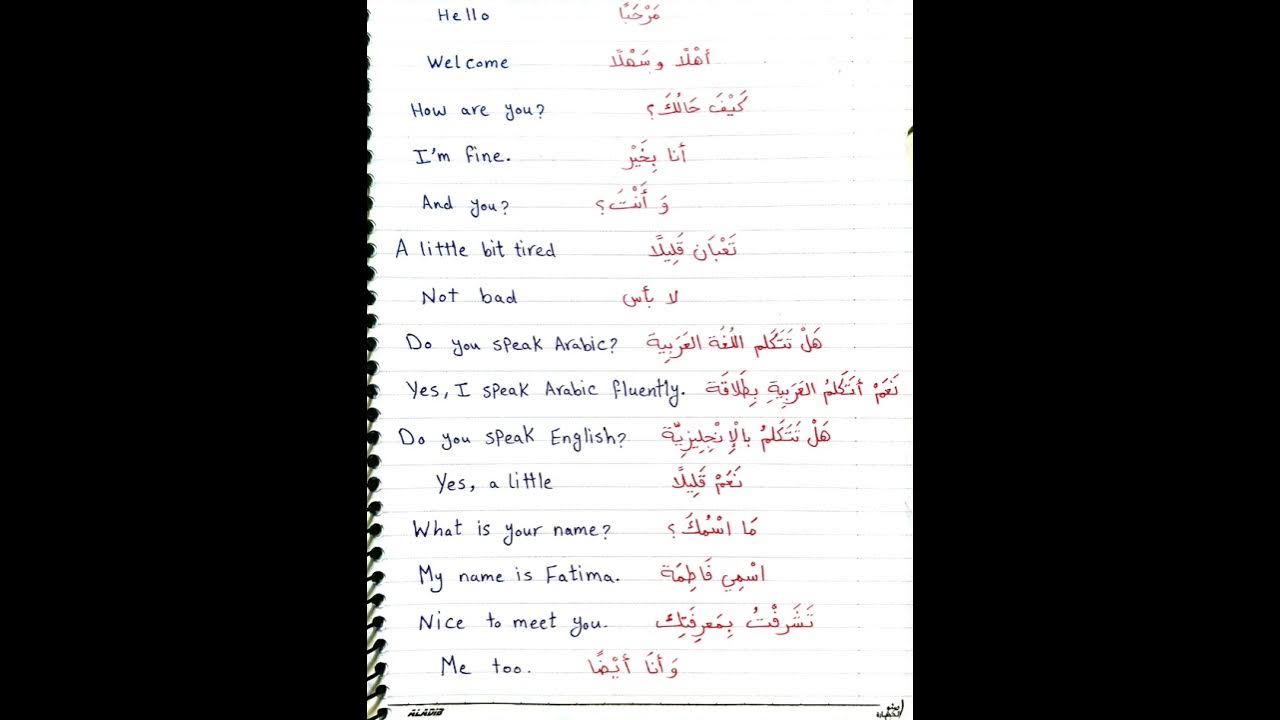 Hello مَرْحَبًا
Welcome أهْلًا وسَهْلًا
How are you? كَيْفَ حَالُكَ؟
I'm fine. أنا بِخَيْر
And you? وَ أَنْتَ؟
A little bit tired تَعْبَان قَلِيلًا
Not bad لا بأس
Do you speak Arabic? هَلْ تَتَكَلم اللُغَة العَرَبِية
Yes, I speak Arabic fluently. نَعَمْ أتَكَلمُ العَرَبِيةِ بِطَلاقَة
Do you speak English? هَلْ تَتَكَلمُ بالْإِنْجِلِيزِيّة
Yes, a little نَعَمْ قَلِيلًا
What is your name? مَا اسْمُكَ؟
My name is Fatima. اسْمِي فَاطِمَة
Nice to meet you. تَشَرفْتُ بِمَعرِفَتِك
Me too. وَأنَا أيْضًا
ALADIB